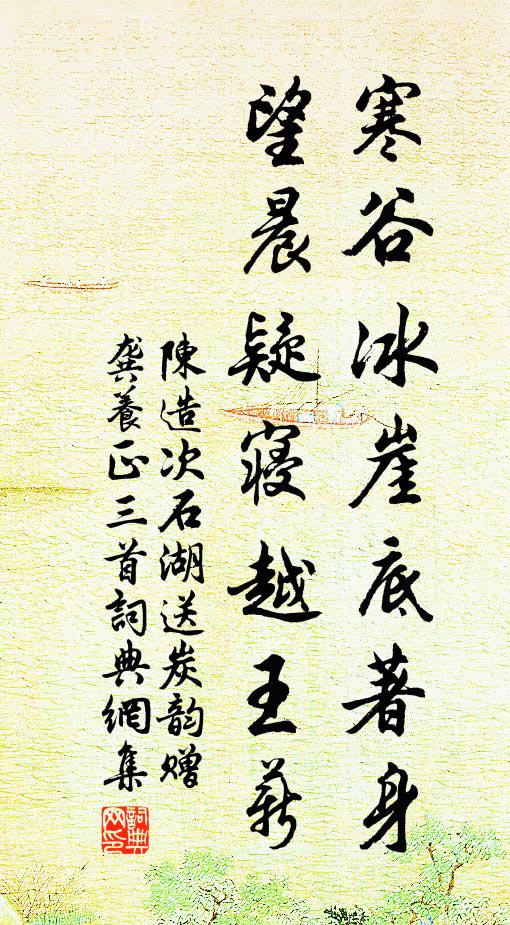 寒谷冰崖底著身
望晨疑寝越王薪
陳造次石湖送炭韵赠
龚養正三首詞典網集
詞典网印